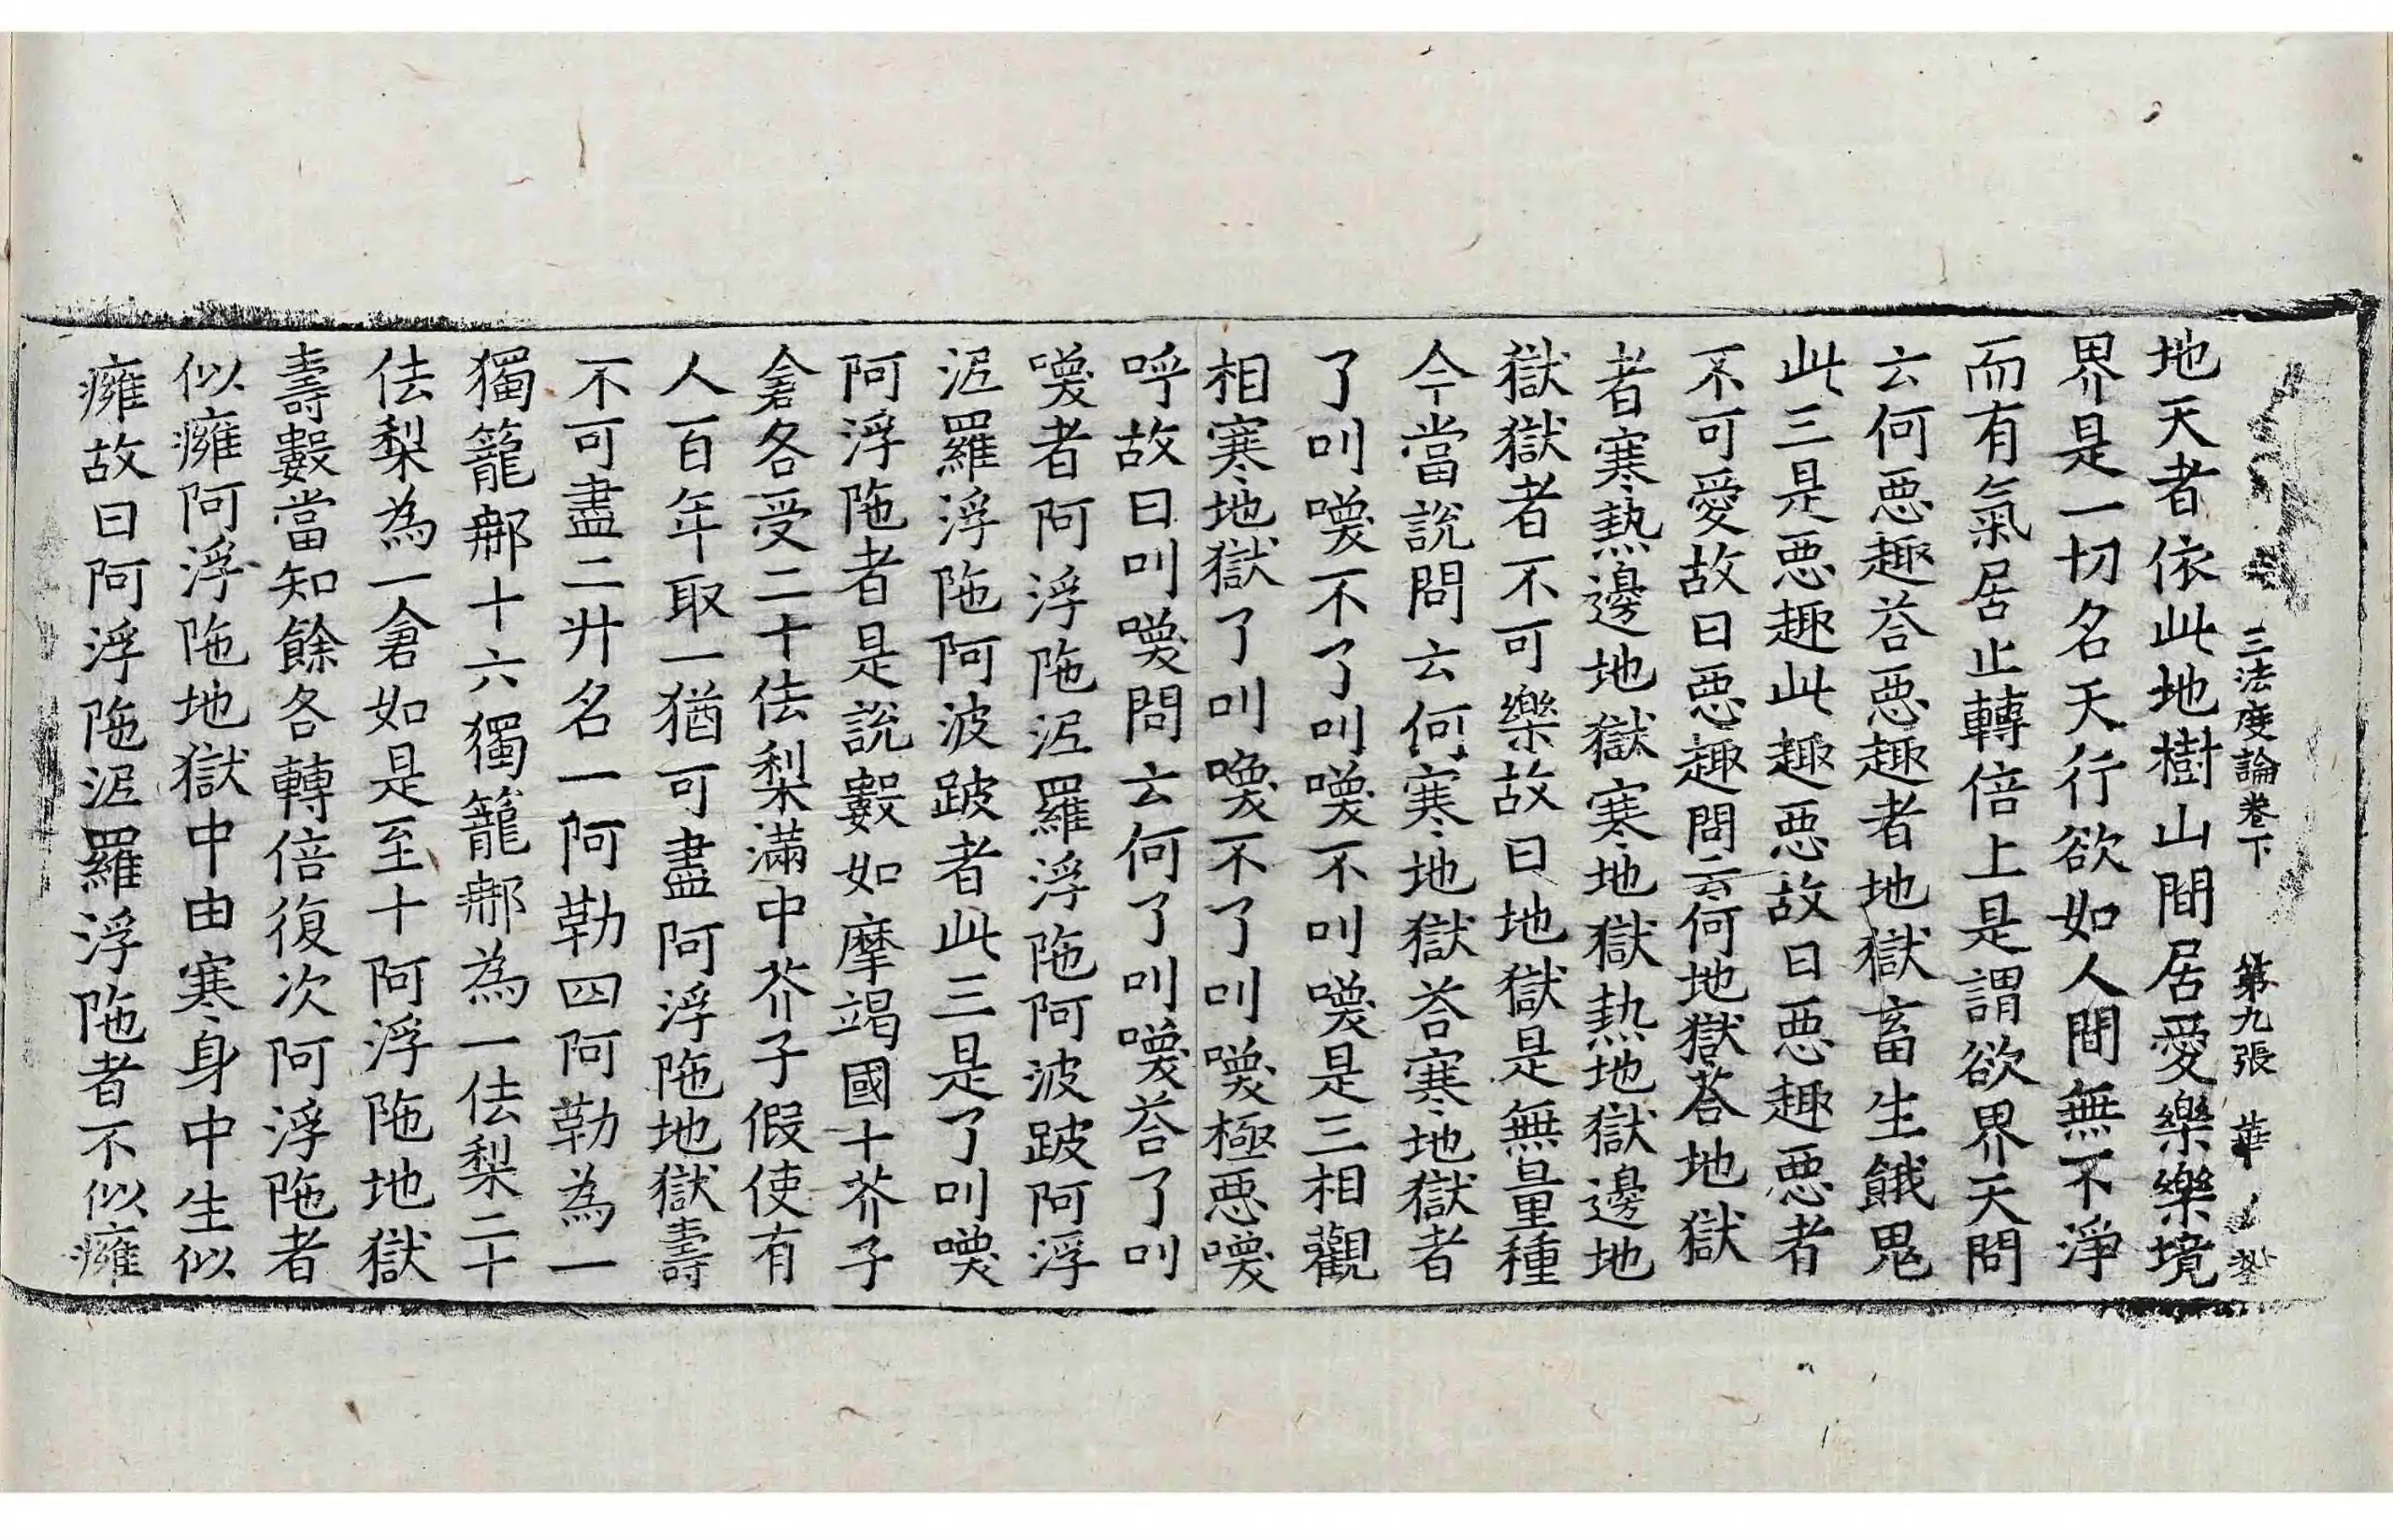 三法度論卷下 第九張 華
地天者依此地樹山間居愛樂樂境
界是一切名天行欲如人間無不淨
而有氣居止轉倍上是謂欲界天問
云何惡趣荅惡趣者地獄畜生餓鬼
此三是惡趣此趣惡故曰惡趣惡者
不可愛故曰惡趣問云何地獄荅地獄
者寒熱邊地獄寒地獄熱地獄邊地
獄獄者不可樂故曰地獄是無量種
今當說問云何寒地獄荅寒地獄者
了叫喚不了叫喚不叫喚是三相觀
相寒地獄了叫喚不了叫喚極惡喚
呼故曰叫喚問云何了叫喚荅了叫
喚者阿浮陁泥羅浮陁阿波跛阿浮
泥羅浮陁阿波跛者此三是了叫喚
阿浮陁者是說數如摩竭國十芥子
倉各受二十佉梨滿中芥子假使有
人百年取一猶可盡阿浮陁地獄壽
不可盡二升名一阿勒四阿勒為一
獨籠䣕十六獨籠䣕為一佉梨二十
佉梨為一倉如是至十阿浮陁地獄
壽數當知餘各轉倍復次阿浮陁者
似癰阿浮陁地獄中由寒身中生似
癰故曰阿浮陁泥羅浮陁者不似癰